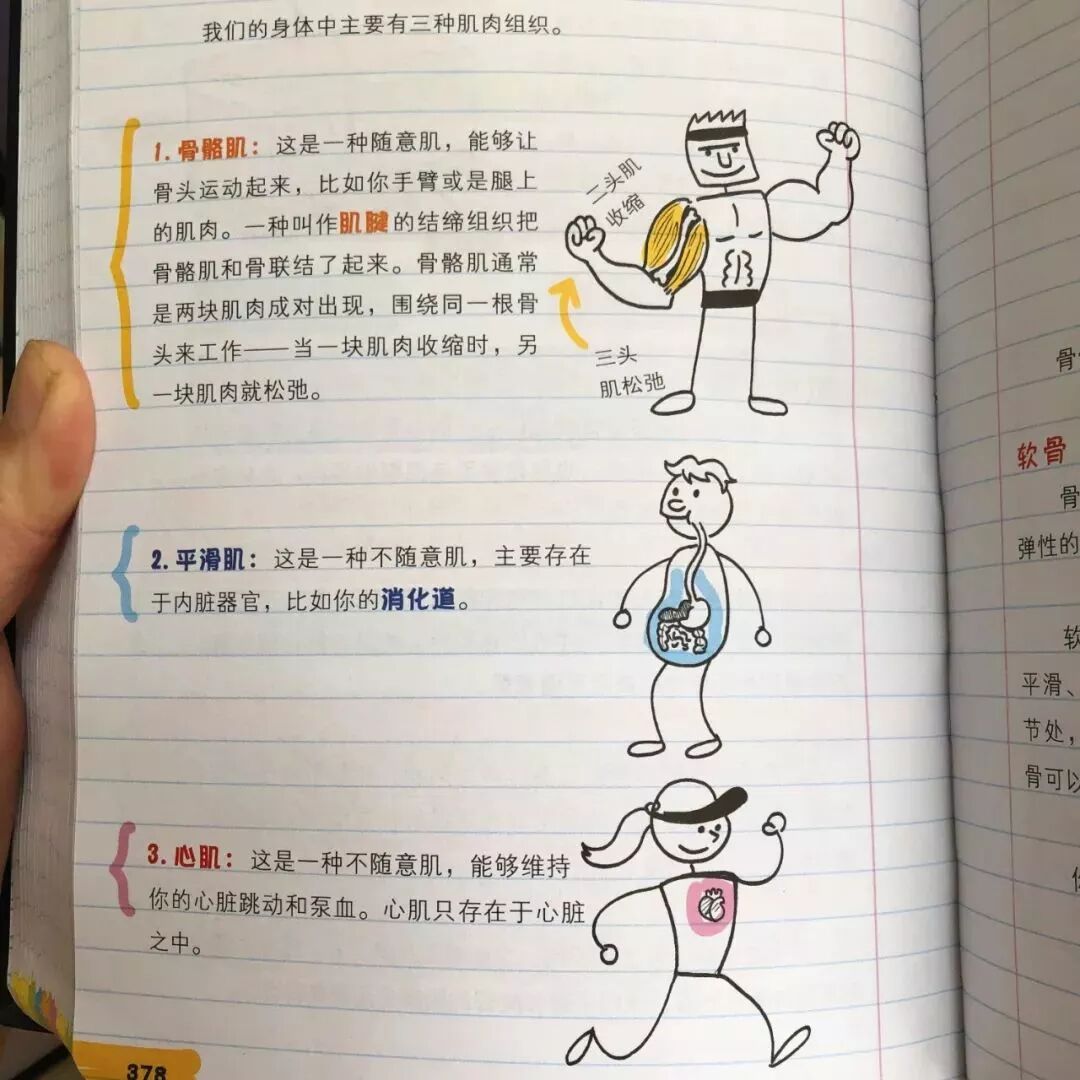 我们的身体中主要有三种肌肉组织。
1. 骨骼肌：这是一种随意肌，能够让
骨头运动起来，比如你手臂或是腿上
的肌肉。一种叫作肌腱的结缔组织把
骨骼肌和骨联结了起来。骨骼肌通常
是两块肌肉成对出现，围绕同一根骨
头来工作——当一块肌肉收缩时，另
一块肌肉就松弛。
二头肌
收缩
三头
肌松弛
2. 平滑肌：这是一种不随意肌，主要存在
于内脏器官，比如你的消化道。
3. 心肌：这是一种不随意肌，能够维持
你的心脏跳动和泵血。心肌只存在于心脏
之中。
378
软骨
骨
弹性的
软
平滑、
节处，
骨可以